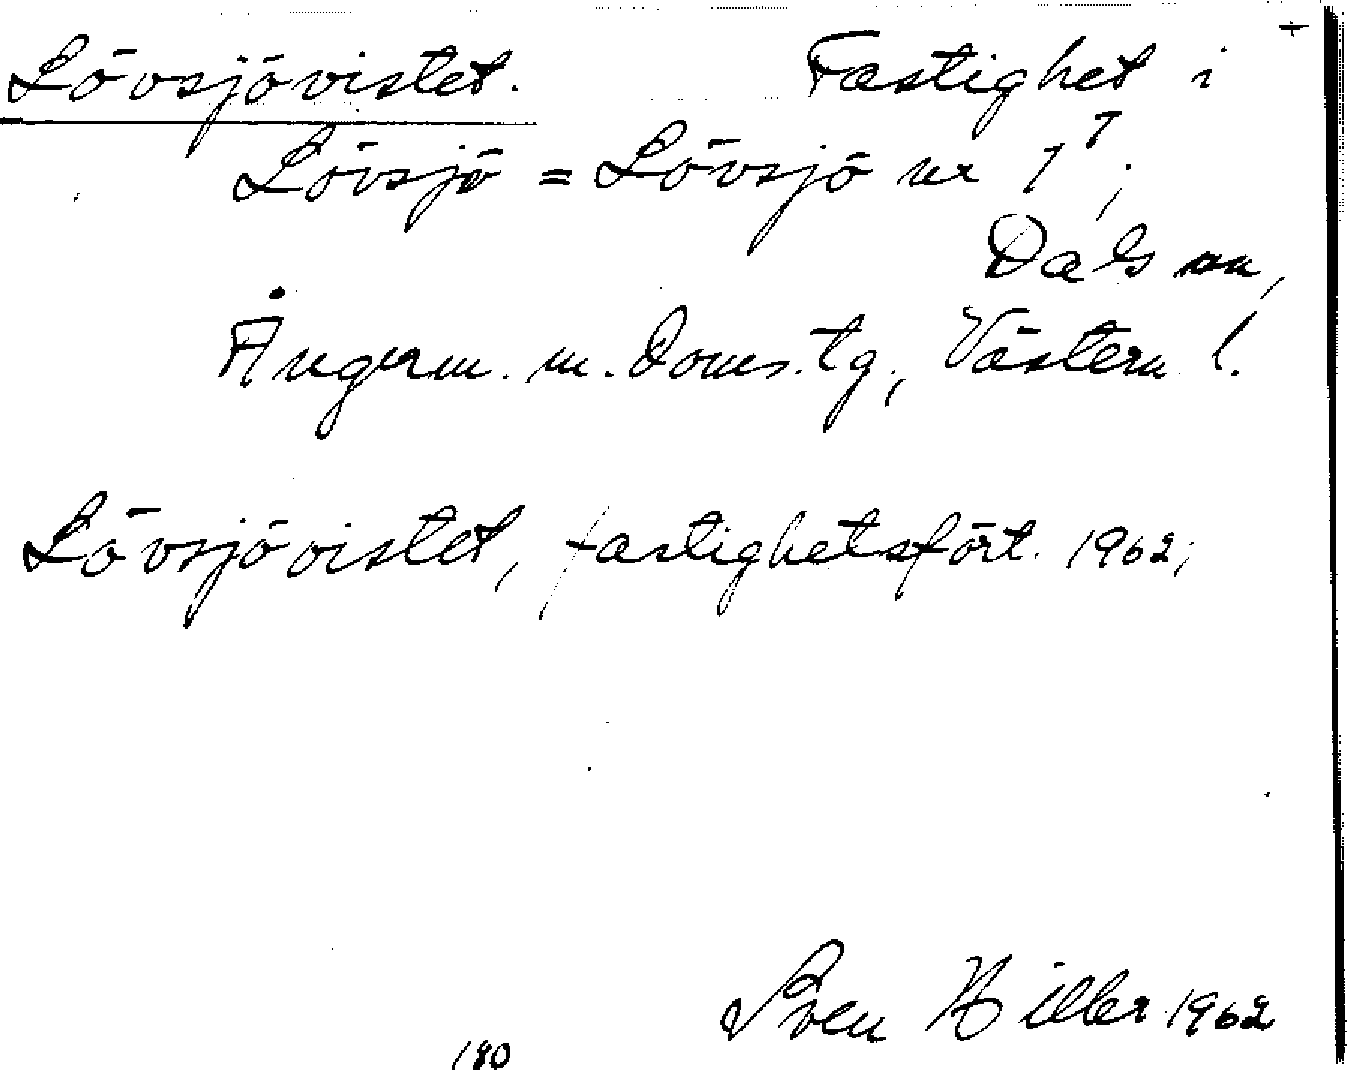 Lövsjövistet. Fastighet i +
Lövsjö = Lövsjö nr 1⁷;
Dals sn,
Ångerm. m. doms. tg., Västern l.
Lövsjövistet, fastighetsfört. 1962;
Sven Hiller 1962
180